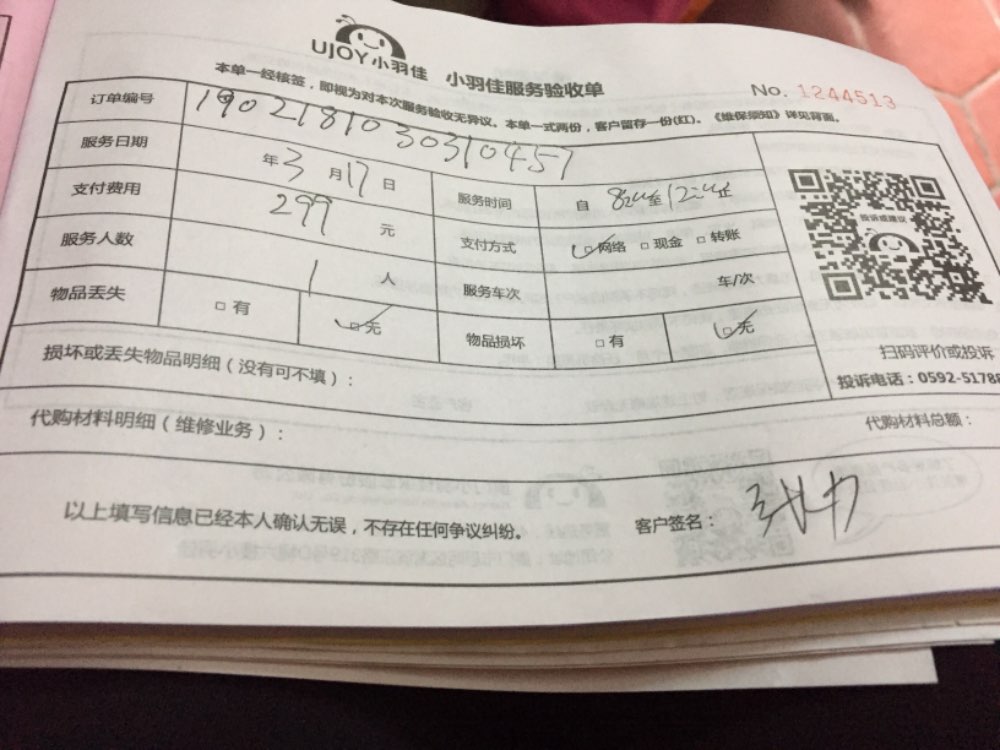 UJOY小羽佳 小羽佳服务验收单
No. 1244513
本单一经核签，即视为对本次服务验收无异议。本单一式两份，客户留存一份(红)。《维保须知》详见背面。
订单编号 1902181030310457
服务日期 年3月17日 服务时间 自 至 止
支付费用 299 元 支付方式 网络 □现金 □转账
服务人数 1 人 服务车次 车/次
物品丢失 □有 □无 物品损坏 □有 □无
投诉或建议
扫码评价或投诉
投诉电话：0592-5178
损坏或丢失物品明细（没有可不填）：
代购材料明细（维修业务）：
代购材料总额：
以上填写信息已经本人确认无误，不存在任何争议纠纷。
客户签名：